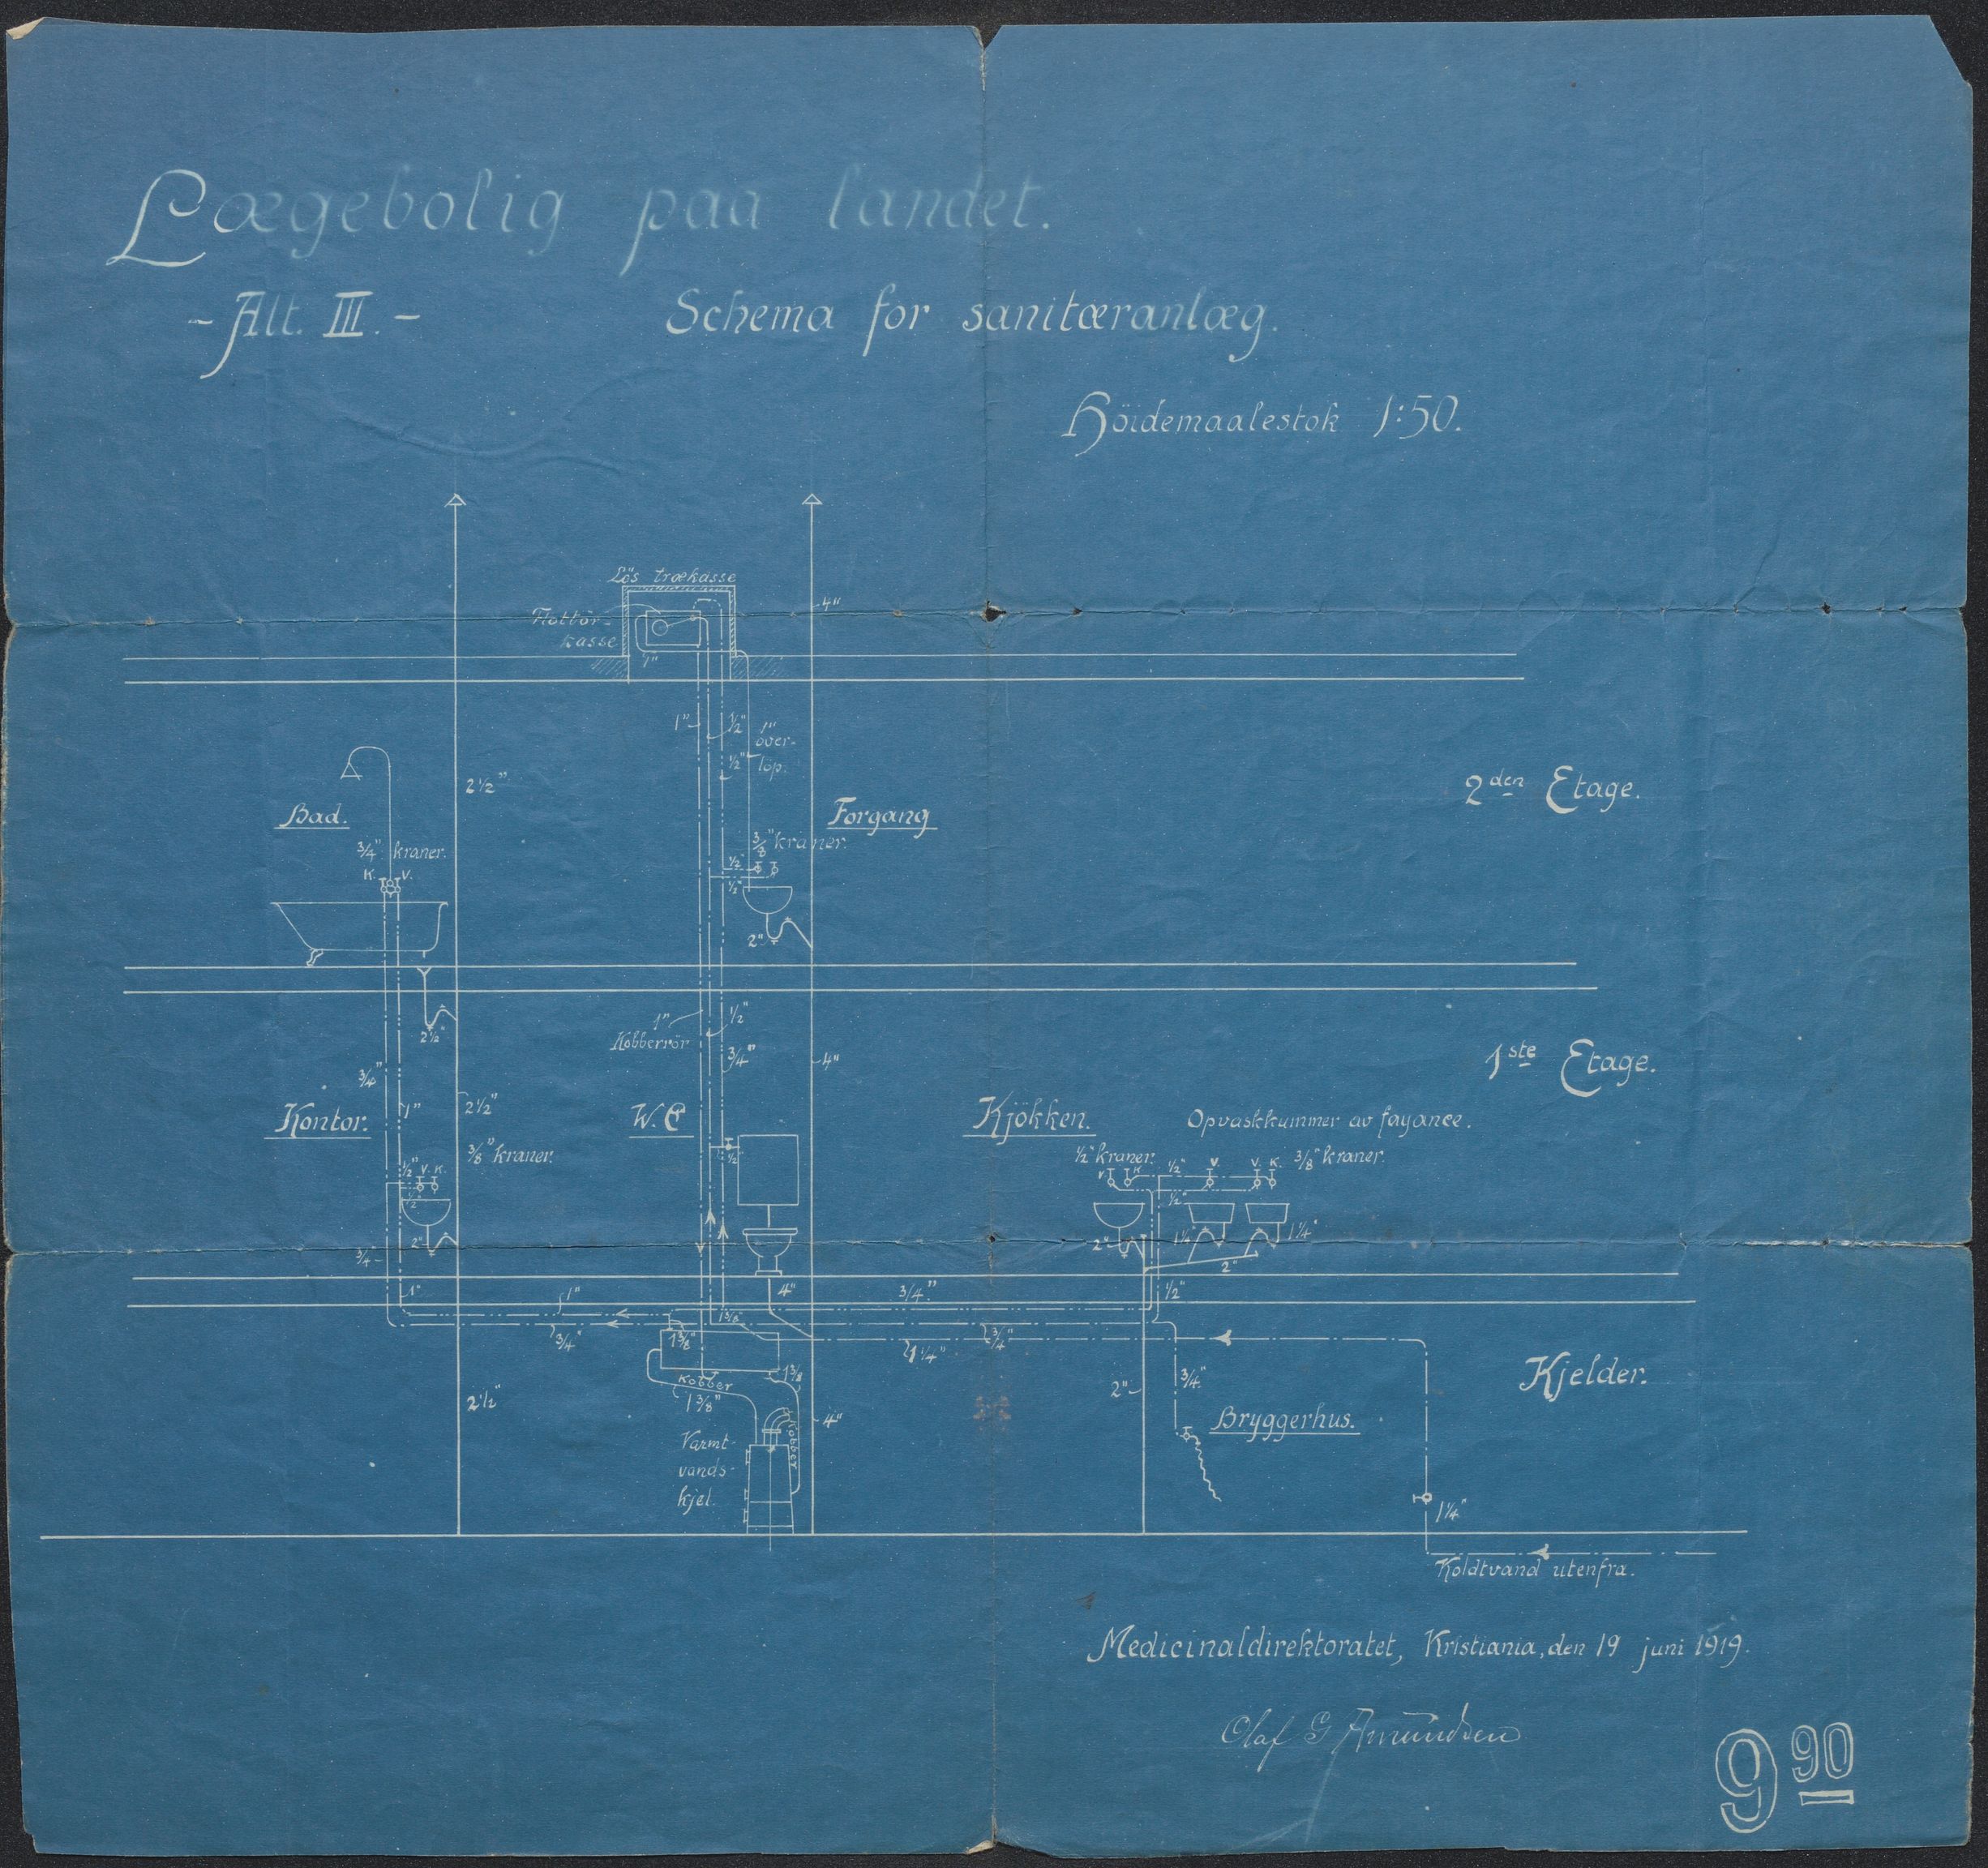 Lægebolig paa landet.
- Alt. III. -
Schema for sanitæranlæg.
Höidemaalestok 1:50.
Lös trækasse
Flottör-
kasse
1"
4"
1"
1/2"
1/2"
1"
over-
löp.
2 1/2"
2den Etage.
Bad.
Forgang
3/4" kraner.
K. V.
3/8" kraner.
1/2"
1/2"
2"
2 1/2"
1"
Kobberrör
1/2"
3/4"
4"
1ste Etage.
3/4"
1"
2 1/2"
Kontor.
W.C
Kjökken.
Opvaskkummer av fayance.
3/8" kraner.
1/2"
1/2" kraner.
3/8" kraner.
1/2" V. K.
1/2"
V. K. 1/2" V. V. K.
1/2"
2"
2" 1 1/4" 1 1/4"
2"
3/4"
1"
4"
3/4"
1/2"
1"
3/4"
1 3/8"
1 3/8"
1 1/4"
3/4"
1 3/8"
Kobber
1 3/8"
Kobber
2 1/2"
4"
2"
3/4"
Kjelder.
Bryggerhus.
Varmt-
vands-
kjel.
1 1/4"
Koldtvand utenfra.
Medicinaldirektoratet, Kristiania, den 19 juni 1919.
Olaf G Amundsen
9 90